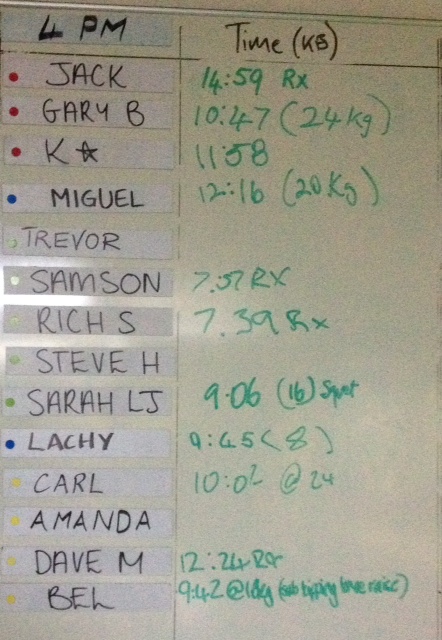 4 PM Time (KB)
JACK 14:59 Rx
GARY B 10:47 (24kg)
K☆ 11:58
MIGUEL 12:16 (20Kg)
TREVOR
SAMSON 7.57 RX
RICH S 7.39 Rx
STEVE H
SARAH LJ 9.06 (16)
LACHY 9:45 (8)
CARL 10:02 @ 24
AMANDA
DAVE M 12:24 Rx
BEL 9:42 knee raise)